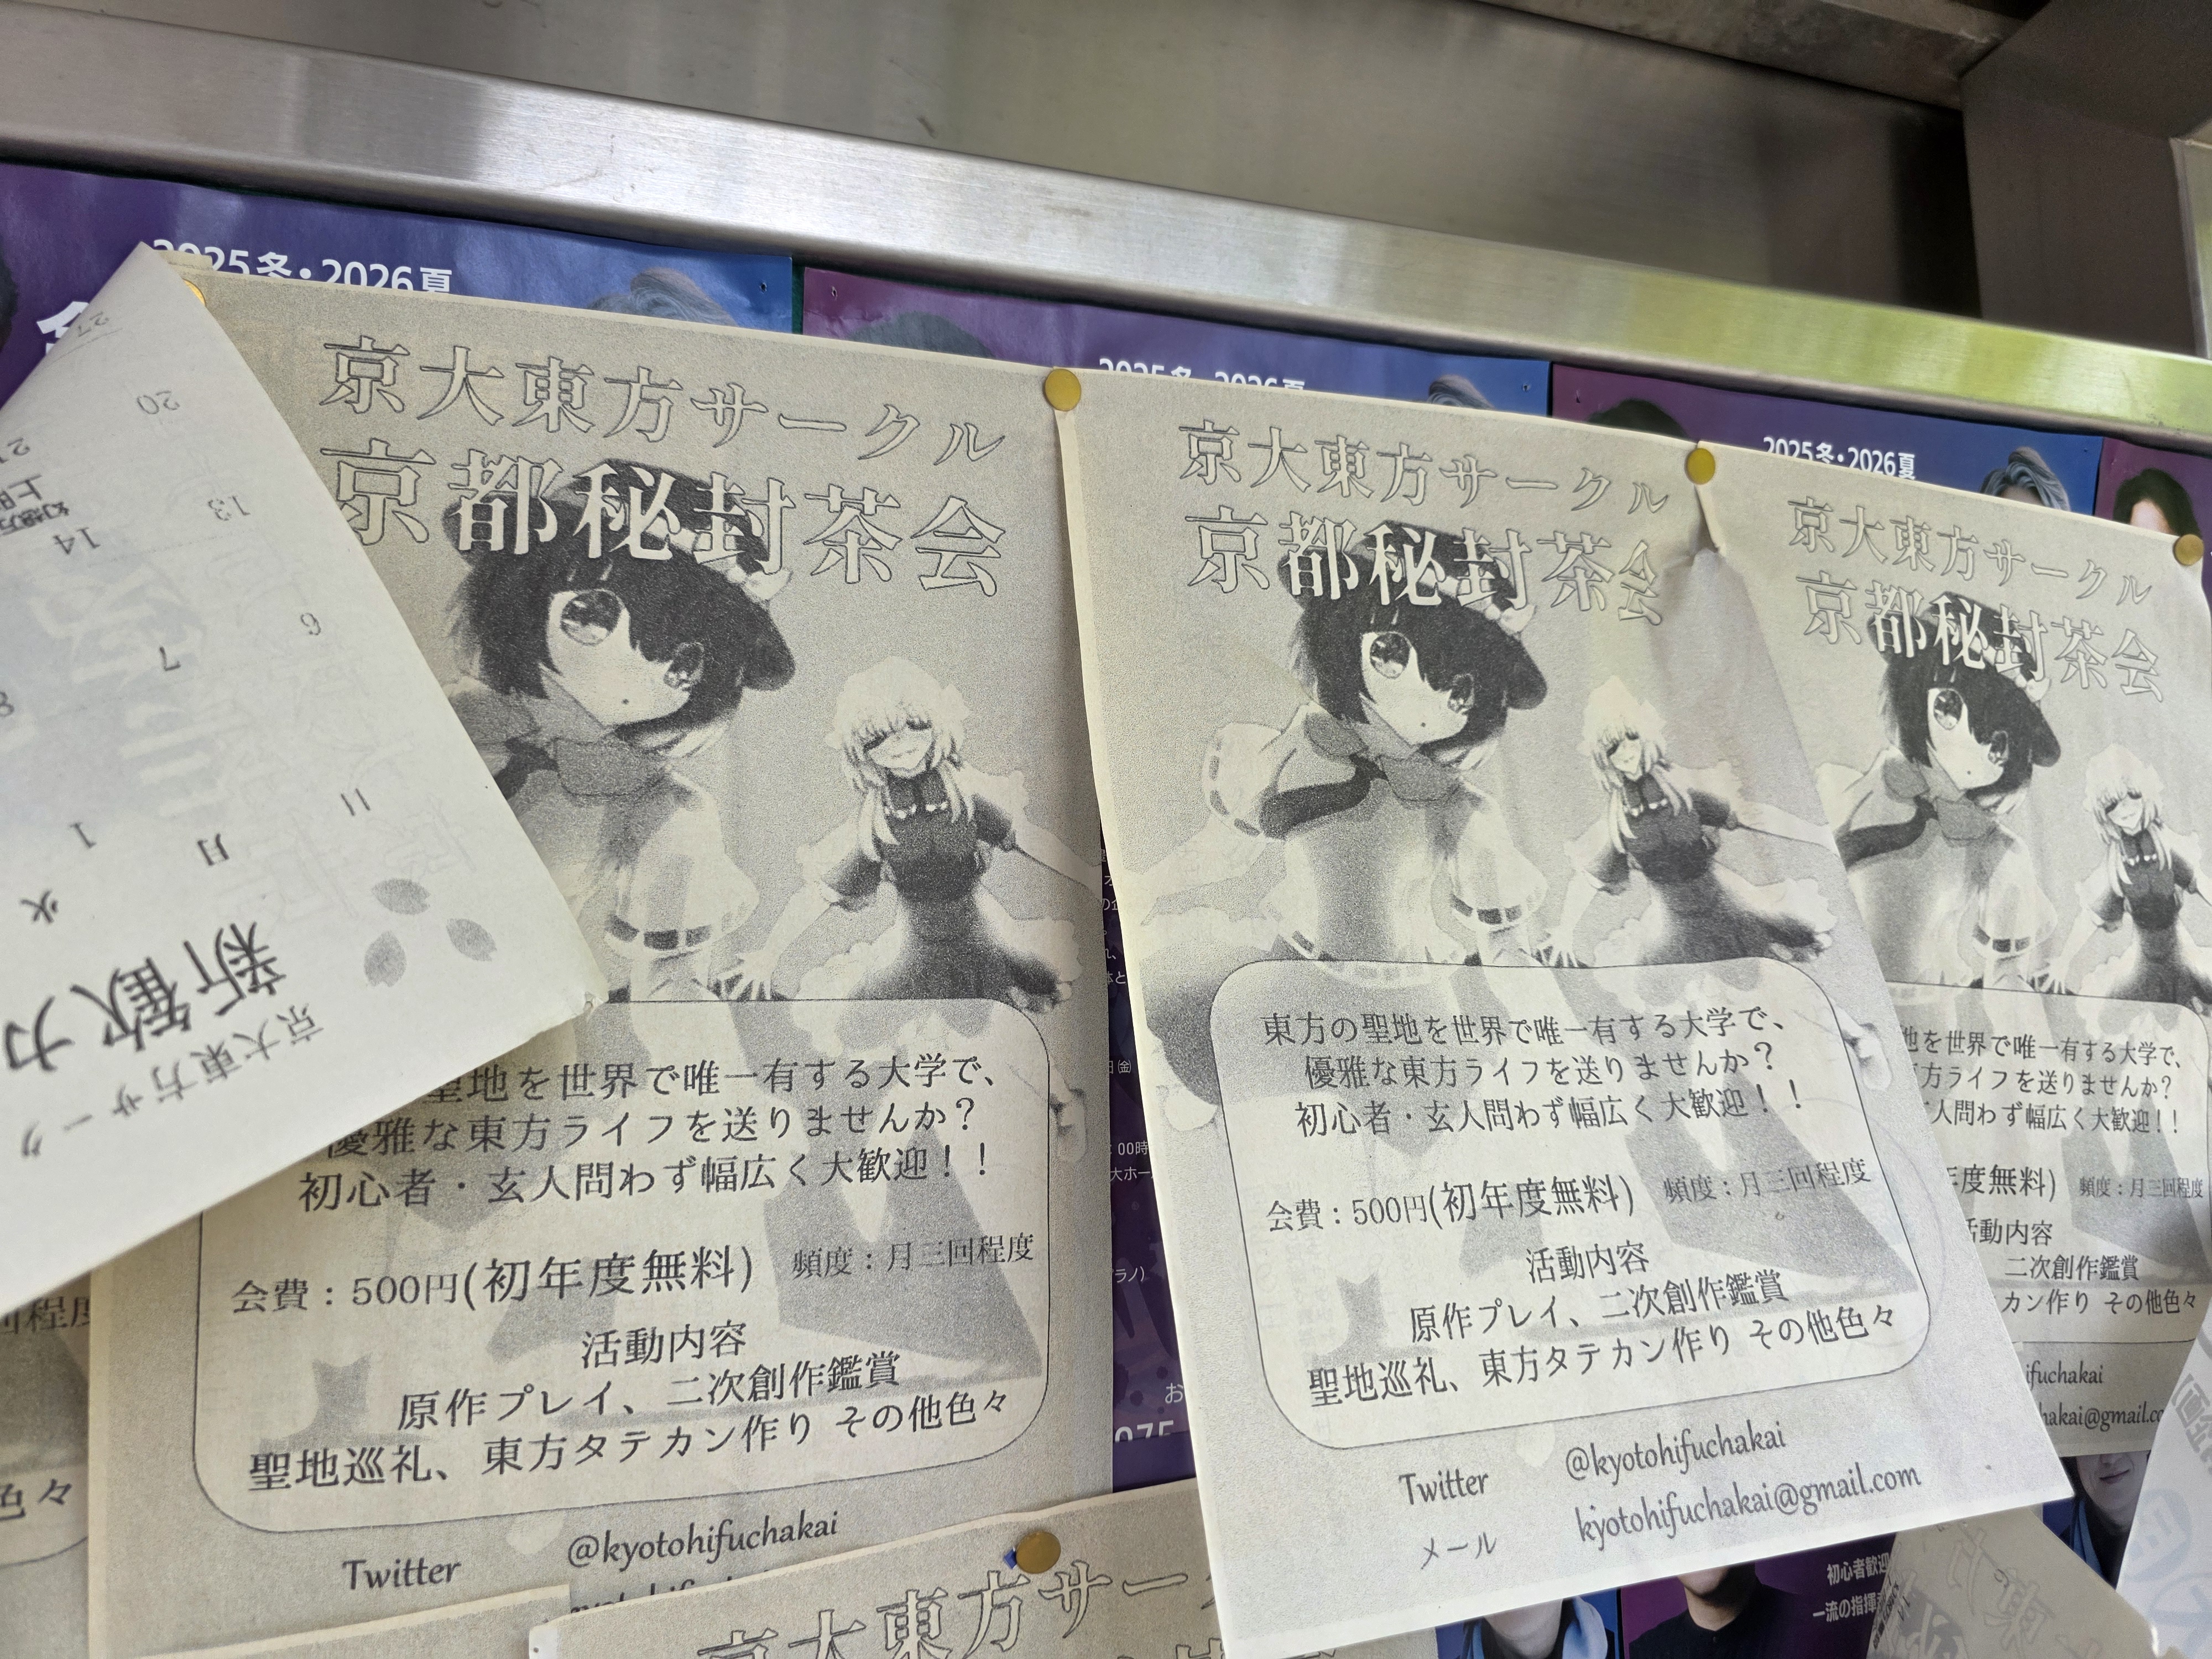 2025冬・2026夏
27
20
13
14
6
7
8
1
日
月
火
新歓カ
京大東方サーク
京大東方サークル
京都秘封茶会
聖地を世界で唯一有する大学で、
優雅な東方ライフを送りませんか？
初心者・玄人問わず幅広く大歓迎！！
会費：500円(初年度無料) 頻度：月三回程度
活動内容
原作プレイ、二次創作鑑賞
聖地巡礼、東方タテカン作り その他色々
Twitter @kyotohifuchakai
2025冬・2026夏
京大東方サークル
京都秘封茶会
東方の聖地を世界で唯一有する大学で、
優雅な東方ライフを送りませんか？
初心者・玄人問わず幅広く大歓迎！！
会費：500円(初年度無料) 頻度：月三回程度
活動内容
原作プレイ、二次創作鑑賞
聖地巡礼、東方タテカン作り その他色々
Twitter @kyotohifuchakai
メール kyotohifuchakai@gmail.com
2025冬・2026夏
京大東方サークル
京都秘封茶会
地を世界で唯一有する大学で、
方ライフを送りませんか？
人問わず幅広く大歓迎！！
年度無料) 頻度：月三回程度
活動内容
二次創作鑑賞
カン作り その他色々
ifuchakai
hakai@gmail.co
回程度
色々
京大東方サー
初心者歓迎
一流の指揮